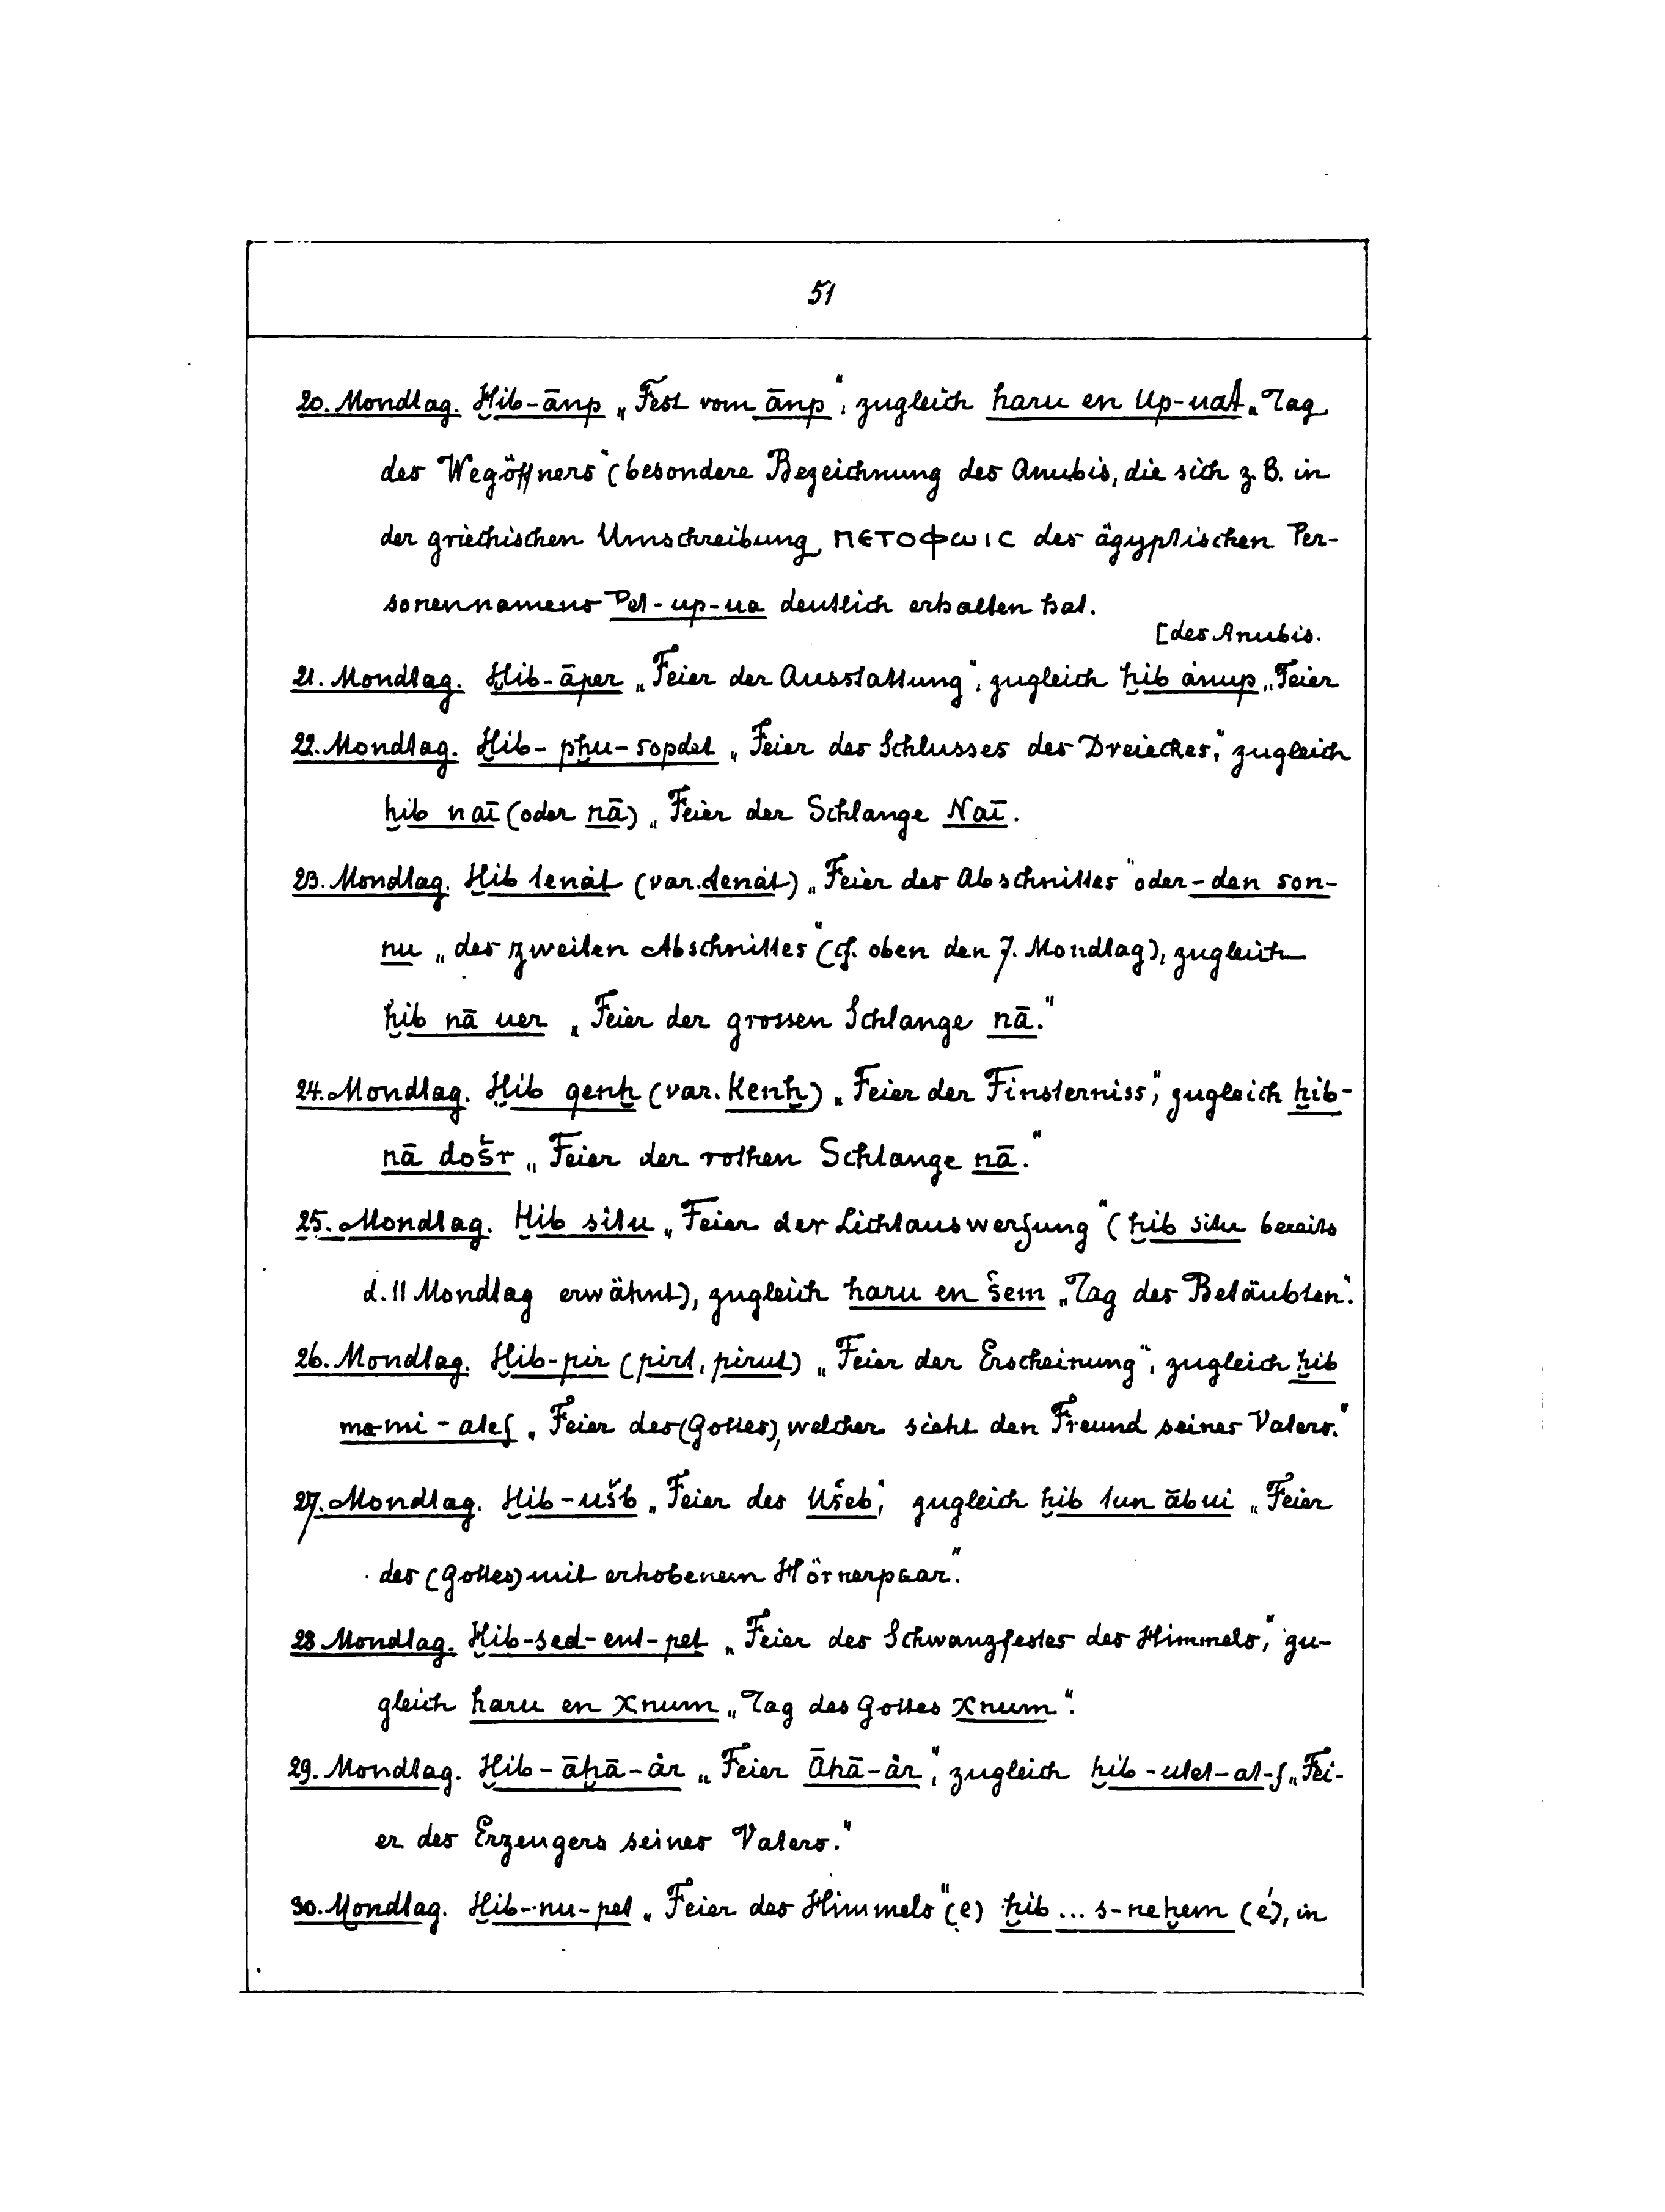 51
20. Mondtag. Ḥib-ānp „Fest vom ānp“, zugleich haru en Up-uat „Tag
des Wegöffners“ (besondere Bezeichnung des Anubis, die sich z. B. in
der griechischen Umschreibung ΠΕΤΟΦωΙC des ägyptischen Per-
sonennamens Pet-up-ua deutlich erhalten hat.
[des Anubis.
21. Mondtag. Ḥib-āper „Feier der Ausstattung“, zugleich ḥib ȧnup „Feier
22. Mondtag. Ḥib-pḥu-sopdet „Feier des Schlusses des Dreieckes,“ zugleich
ḥib naī (oder nā) „Feier der Schlange Naī.
23. Mondtag. Ḥib tenȧt (var. denȧt) „Feier des Abschnittes“ oder -den son-
nu „des zweiten Abschnittes“ (cf. oben den 7. Mondtag), zugleich
ḥib nā uer „Feier der grossen Schlange nā.“
24. Mondtag. Ḥib qenḥ (var. Kenḥ) „Feier der Finsterniss“, zugleich ḥib-
nā došr „Feier der rothen Schlange nā.“
25. Mondtag. Ḥib situ „Feier der Lichtauswerfung“ (ḥib situ bereits
d. 11 Mondtag erwähnt), zugleich haru en šem „Tag des Betäubten“.
26. Mondtag. Ḥib-pir (pirt, pirut) „Feier der Erscheinung“, zugleich ḥib
ma-mi-atef „Feier des (Gottes), welcher sieht den Freund seines Vaters.“
27. Mondtag. Ḥib-ušb „Feier des Ušeb“, zugleich ḥib tun ābui „Feier
des (Gottes) mit erhobenem Hörnerpaar.“
28 Mondtag. Ḥib-sed-ent-pet „Feier des Schwanzfestes des Himmels,“ zu-
gleich haru en Xnum „Tag des Gottes Xnum“.
29. Mondtag. Ḥib-āḥā-ȧr „Feier Āhā-ȧr“, zugleich ḥib-utet-at-f „Fei-
er des Erzeugers seines Vaters.“
30. Mondtag. Ḥib-nu-pet „Feier des Himmels“ (e) ḥib ... s-neḥem (é), in